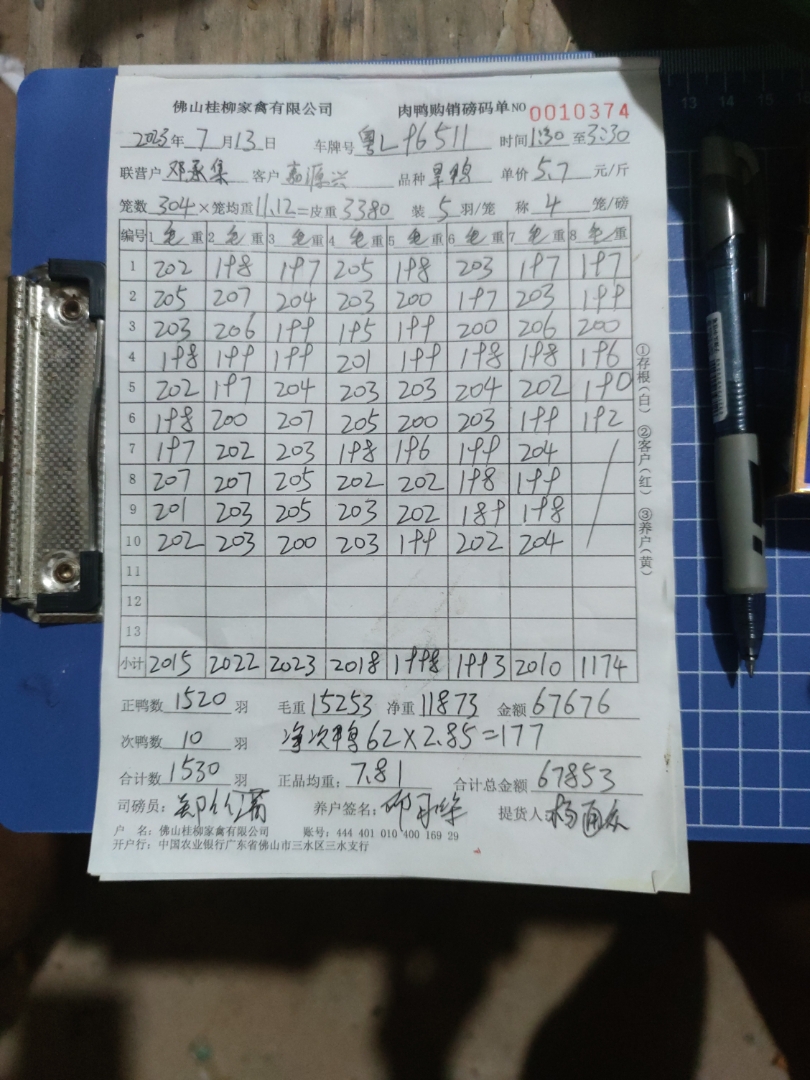 佛山桂柳家禽有限公司 肉鸭购销磅码单 NO 0010374
2023年7月13日 车牌号 粤L96511 时间1:30至3:30
联营户 邓承集 客户 嘉源兴 品种 单价 5.7 元/斤
笼数 304 × 笼均重 11.12 = 皮重 3380 装 5 羽/笼 称 4 笼/磅
编号 1 毛重 2 毛重 3 毛重 4 毛重 5 毛重 6 毛重 7 毛重 8 毛重
1 202 198 197 205 198 203 197 197
2 205 207 204 203 200 197 203 199
3 203 206 199 195 199 200 206 200
4 198 199 199 201 199 198 198 196
5 202 197 204 203 203 204 202 190
6 198 200 207 205 200 203 199 192
7 197 202 203 198 196 199 204
8 207 207 205 202 202 198 199
9 201 203 205 203 202 189 198
10 202 203 200 203 199 202 204
11
12
13
小计 2015 2022 2023 2018 1998 1993 2010 1174
正鸭数 1520 羽 毛重 15253 净重 11873 金额 67676
次鸭数 10 羽 净次鸭 62×2.85=177
合计数 1530 羽 正品均重: 7.81 合计总金额 67853
司磅员: 养户签名: 提货人:
户 名: 佛山桂柳家禽有限公司 账号: 444 401 010 400 169 29
开户行: 中国农业银行广东省佛山市三水区三水支行
①存根(白) ②客户(红) ③养户(黄)
13 14 15